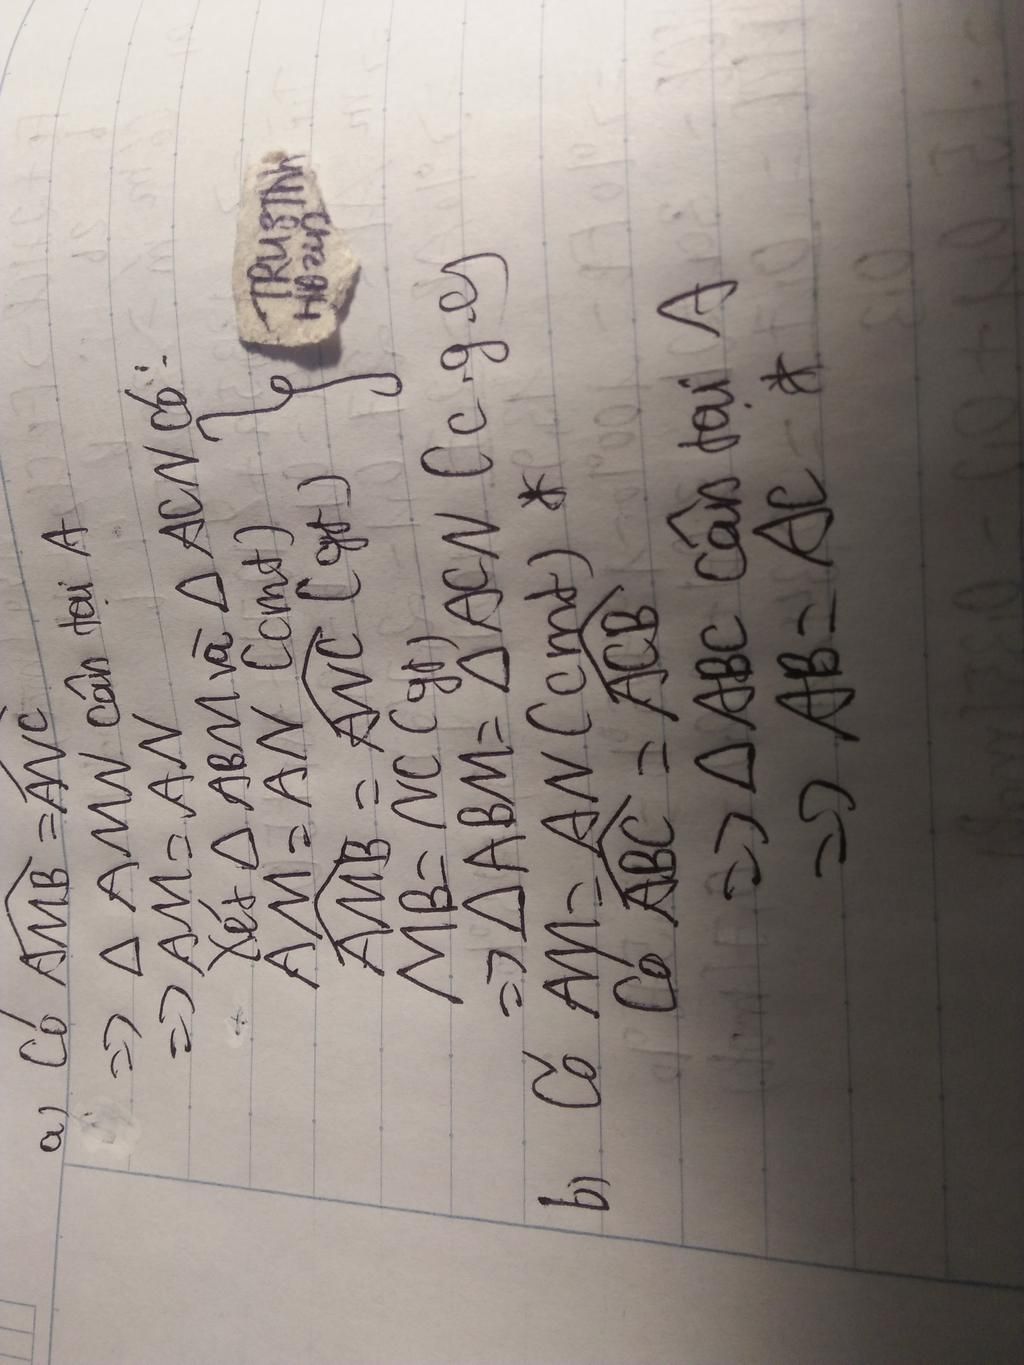 a) Có AMB = ANC
=> Δ AMN cân tại A
=> AM = AN
Xét Δ ABM và Δ ACN có:
AM = AN (cmt)
AMB = ANC (gt)
MB = NC (gt)
=> Δ ABM = Δ ACN (c.g.c)
b) Có AM = AN (cmt) *
Có ABC = ACB
=> Δ ABC cân tại A
=> AB = AC *